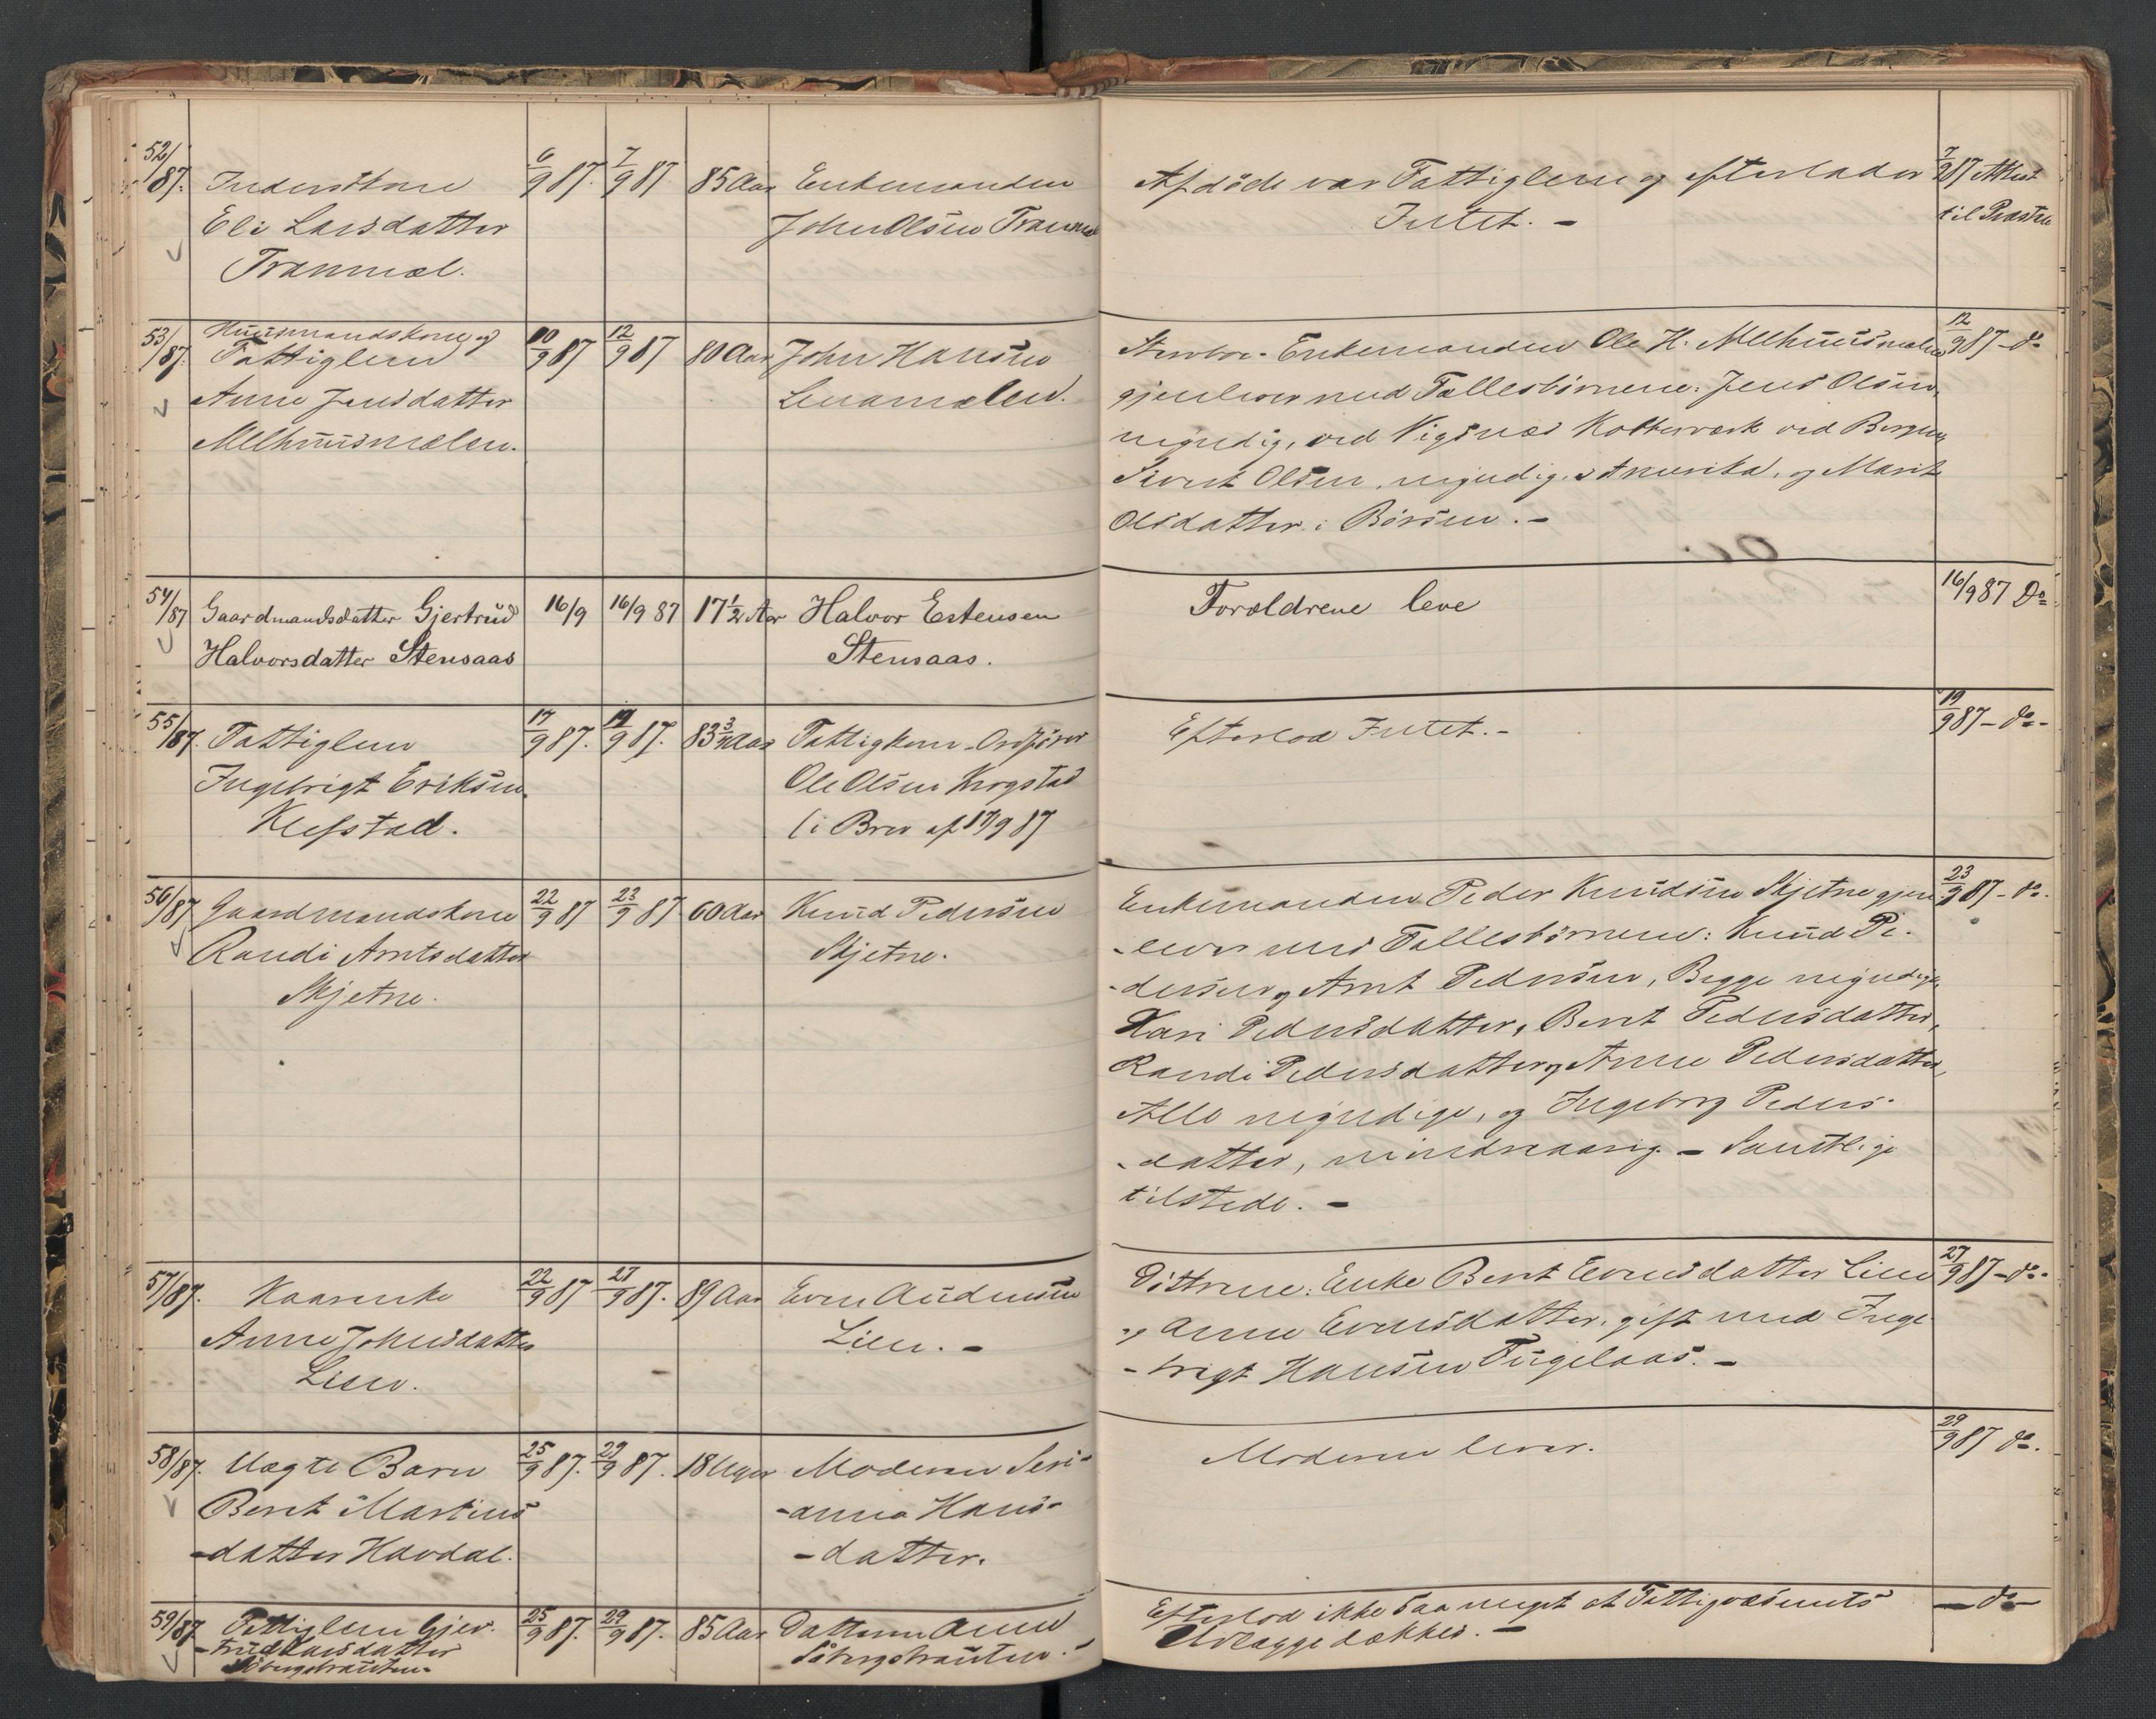 52/87. Inderstkone 6/9 87. 7/9 87 85 Aar Enkemanden Afdøde var Fattiglem og efterlader 7/9 87 Attest
Eli Larsdatter John Olsen Tranmæl Intet. - til Præsten
Tranmæl.
53/87. Huusmandskone og
Fattiglem 10/9 87 12/9 87 80 Aar John Hansen Stervbo. Enkemanden Ole H. Melhuusmælen 12/9 87 - do
Anne Jensdatter Leuamælen. gjenlever med Fællesbørnene: Jens Olsen,
Melhuusmælen. myndig, ved Vigsnæs Kobberværk ved Bergen,
Sivert Olsen, myndig, i Amerika, og Marit
Olsdatter i Börsen. -
54/87 Gaardmandsdatter Gjertrud 16/9 16/9 87 17 1/2 Aar Halvor Estensen Forældrene leve 16/9 87 Do
Halvorsdatter Stensaas Stensaas.
55/87. Fattiglem 17/9 87. 19/9 87. 83 3/4 Aar Fattigkom. Ordfører Efterlod Intet. - 19/9 87 - do -
Ingebrigt Eriksen Ole Olsen Krogstad
Klefstad. (i Brev af 17/9 87
56/87 Gaardmandskone 22/9 87 23/9 87 60 Aar Knud Pedersen Enkemanden Peder Knudsen Skjetne gjen- 23/9 87 - do.
Randi Arntsdatter Skjetne. -lever med Fællesbørnene: Knud Pe-
Skjetne. -dersen og Arnt Pedersen, Begge myndige,
Kari Pedersdatter, Berit Pedersdatter,
Randi Pedersdatter og Anne Pedersdatter,
Alle myndige, og Ingeborg Peders-
-datter, mindreaarig. - Samtlige
tilstede. -
57/87. Kaarenke 22/9 87 27/9 87. 89 Aar Even Audensen Döttrene: Enke Berit Evensdatter Lien 27/9 87 - do.
Anne Johnsdatter Lien. - og Anne Evensdatter, gift med Inge-
Lien. -brigt Hansen Fuglaas. -
58/87. Uægte Barn 25/9 87. 29/9 87. 18 Uger Moderen Seri- Moderen lever. 29/9 87 do.
Berit Martins -anna Hans-
-datter Havdal. -datter.
59/87 Fattiglem Gjer- 25/9 87. 29/9 87. 85 Aar Datteren Anne Efterlod ikke saa meget at Fattigvæsenets - do -
-trud Larsdatter Söbergstrauten. Udlægge dækkes. -
Söbergstrauten.